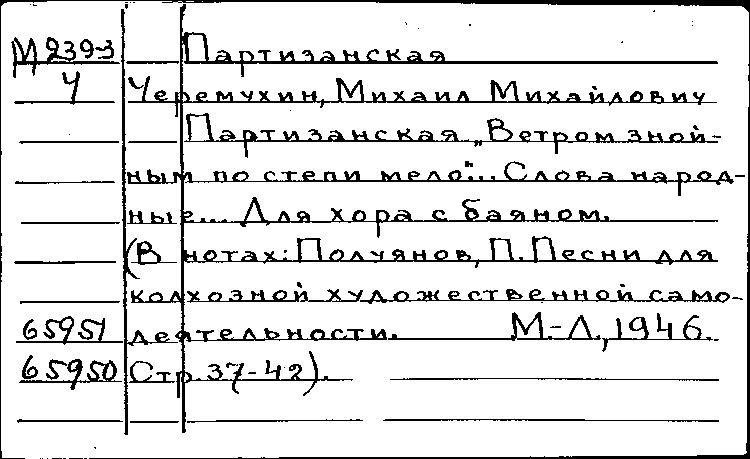 М 239-3 Партизанская
Ч Черемухин, Михаил Михайлович
Партизанская „Ветром зной-
ным по степи мело"... Слова народ-
ные... Для хора с баяном.
(В нотах: Полуянов, П. Песни для
колхозной художественной само-
65951 деятельности. М.-Л., 1946.
65950 Стр. 37-42).